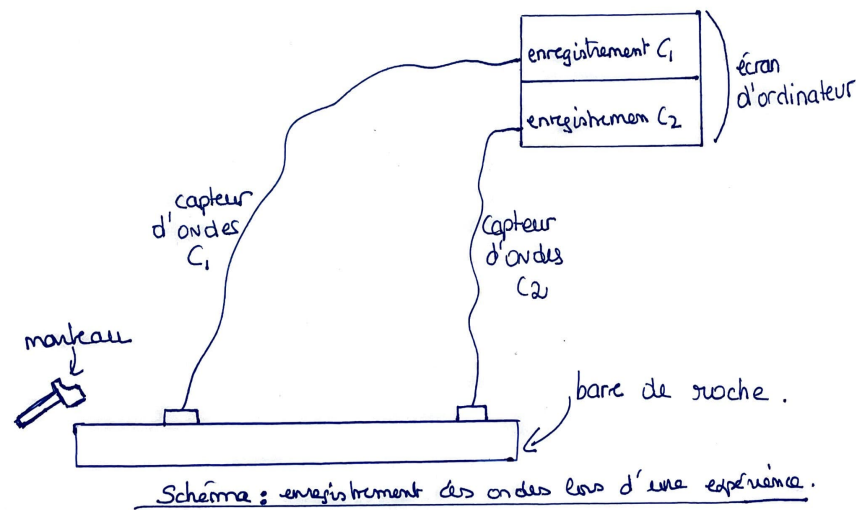 enregistrement C1
enregistremen C2
écran
d'ordinateur
capteur
d'ondes
C1
capteur
d'ondes
C2
marteau
barre de roche.
Schéma : enregistrement des ondes lors d'une expérience.